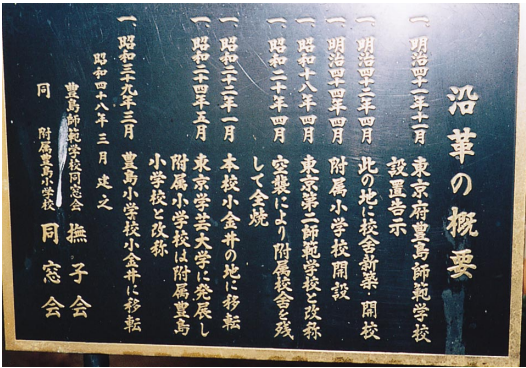 沿革の概要
一、明治四十一年十一月 東京府豊島師範学校
設置告示
一、明治四十二年四月 此の地に校舎新築 開校
一、明治四十四年四月 附属小学校開設
一、昭和十八年四月 東京第二師範学校と改称
一、昭和二十年四月 空襲により附属校舎を残
して全焼
一、昭和二十二年一月 本校小金井の地に移転
一、昭和二十四年五月 東京学芸大学に発展し
附属小学校は附属豊島
小学校と改称
一、昭和三十九年三月 豊島小学校小金井に移転
昭和四十八年三月 建之
豊島師範学校同窓会 撫子会
同 附属豊島小学校 同窓会